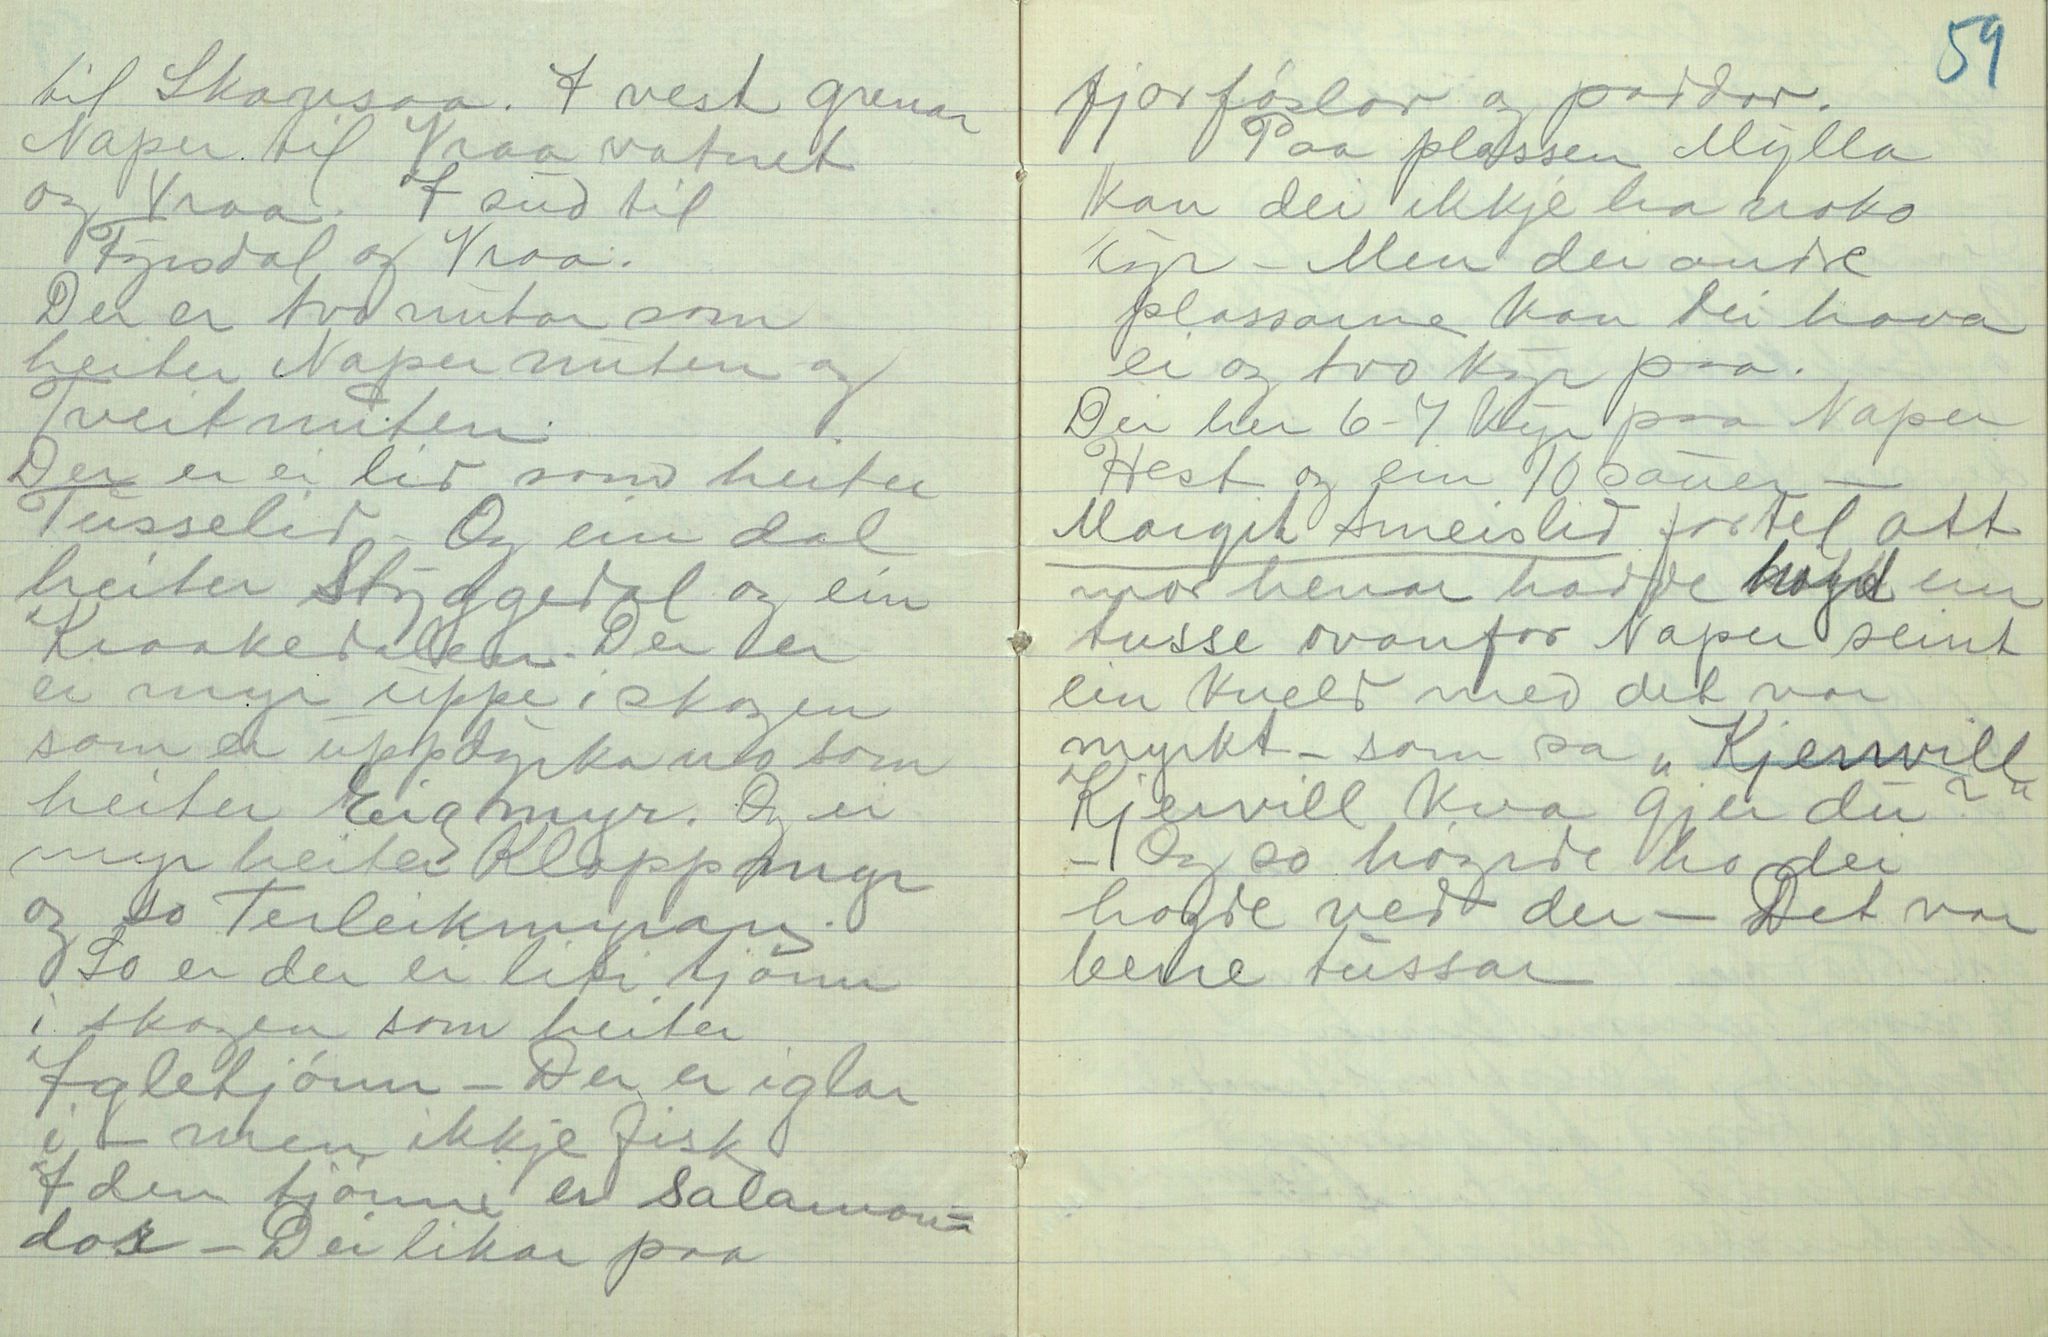 til Skansaa. I vest grenar
Naper til Vraa vatnet
og Vraa. I sud til
Fyrsdal og Vraa.
Der er tvo nutar som
heiter Naper nuten og
Tveitnuten.
Der er ei lid som heiter
Tusselid - Og ein dal
heiter Styggedal og ein
Kraakedalen. Der er
ei myr uppe i skogen
som er uppdyrka no som
heiter Eigmyr. Og ei
myr heiter Kloppmyr
og so Terleikmyran.
So er der ei liti tjönn
i skogen som heiter
Igletjönn - Der er iglar
i - men ikkje fisk
I den tjönni er Salaman=
dar - Dei likar paa
59
fjorföslor og paddor.
Paa plassen Mylla
kan dei ikkje ha noko
kyr - Men dei andre
plassarne kan dei hava
ei og tvo kyr paa.
Dei her 6-7 kyr paa Naper
Hest og ein 10 sauer -
Margit Smeislid fortel att
mor hennar hadde høyrd ein
tusse ovanfor Naper seint
ein kveld med det var
myrkt - som sa "Kjervill
Kjervill kva gjer du?"
- Og so höyrde ho dei
hogde ved der - Det var
berre tussar